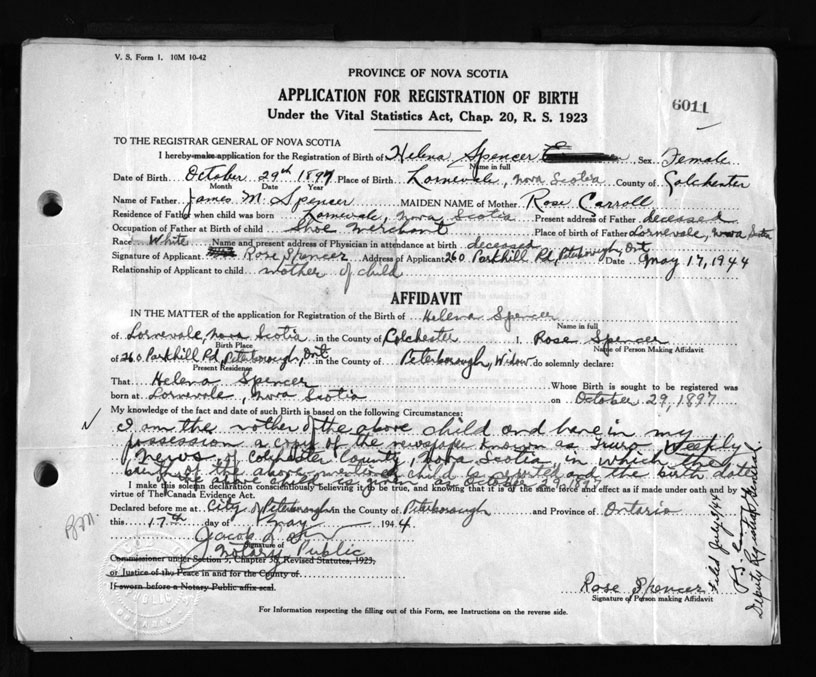 V. S. Form 1. 10M 10-42
PROVINCE OF NOVA SCOTIA
APPLICATION FOR REGISTRATION OF BIRTH
6011
Under the Vital Statistics Act, Chap. 20, R. S. 1923
TO THE REGISTRAR GENERAL OF NOVA SCOTIA
I hereby make application for the Registration of Birth of Helena Spencer Sex Female
Name in full
Date of Birth October 29th 1897 Place of Birth Lornevale, Nova Scotia County of Colchester
Month Date Year
Name of Father James M. Spencer MAIDEN NAME of Mother Rose Carroll
Residence of Father when child was born Lornevale, Nova Scotia Present address of Father deceased
Occupation of Father at Birth of child Shoe Merchant Place of birth of Father Lornevale, Nova Scotia
Race White Name and present address of Physician in attendance at birth deceased
Signature of Applicant Rose Spencer Address of Applicant 260 Parkhill Rd, Peterborough, Ont Date May 17, 1944
Relationship of Applicant to child mother of child
AFFIDAVIT
IN THE MATTER of the application for Registration of the Birth of Helena Spencer
Name in full
of Lornevale, Nova Scotia in the County of Colchester I, Rose Spencer
Birth Place Name of Person Making Affidavit
of 260 Parkhill Rd, Peterborough, Ont in the County of Peterborough, Widow do solemnly declare:
Present Residence
That Helena Spencer Whose Birth is sought to be registered was
born at Lornevale, Nova Scotia on October 29, 1897
My knowledge of the fact and date of such Birth is based on the following Circumstances:
I am the mother of the above child and have in my
possession a copy of the newspaper known as Truro Weekly
News of Colchester County, Nova Scotia in which the
birth of the above mentioned child is reported and the birth date
of the above child is given as October 29, 1897
I make this solemn declaration conscientiously believing it to be true, and knowing that it is of the same force and effect as if made under oath and by
virtue of The Canada Evidence Act.
Declared before me at City of Peterborough in County of Peterborough and Province of Ontario
this 17th day of May 1944
Jacob L.
Signature of
Notary Public
Commissioner under Section 3, Chapter 38, Revised Statutes, 1923,
or Justice of the Peace in and for the County of
If sworn before a Notary Public affix seal.
Rose Spencer
Signature of Person making Affidavit
For Information respecting the filling out of this Form, see Instructions on the reverse side.
Filed July 4/44
Deputy Registrar General